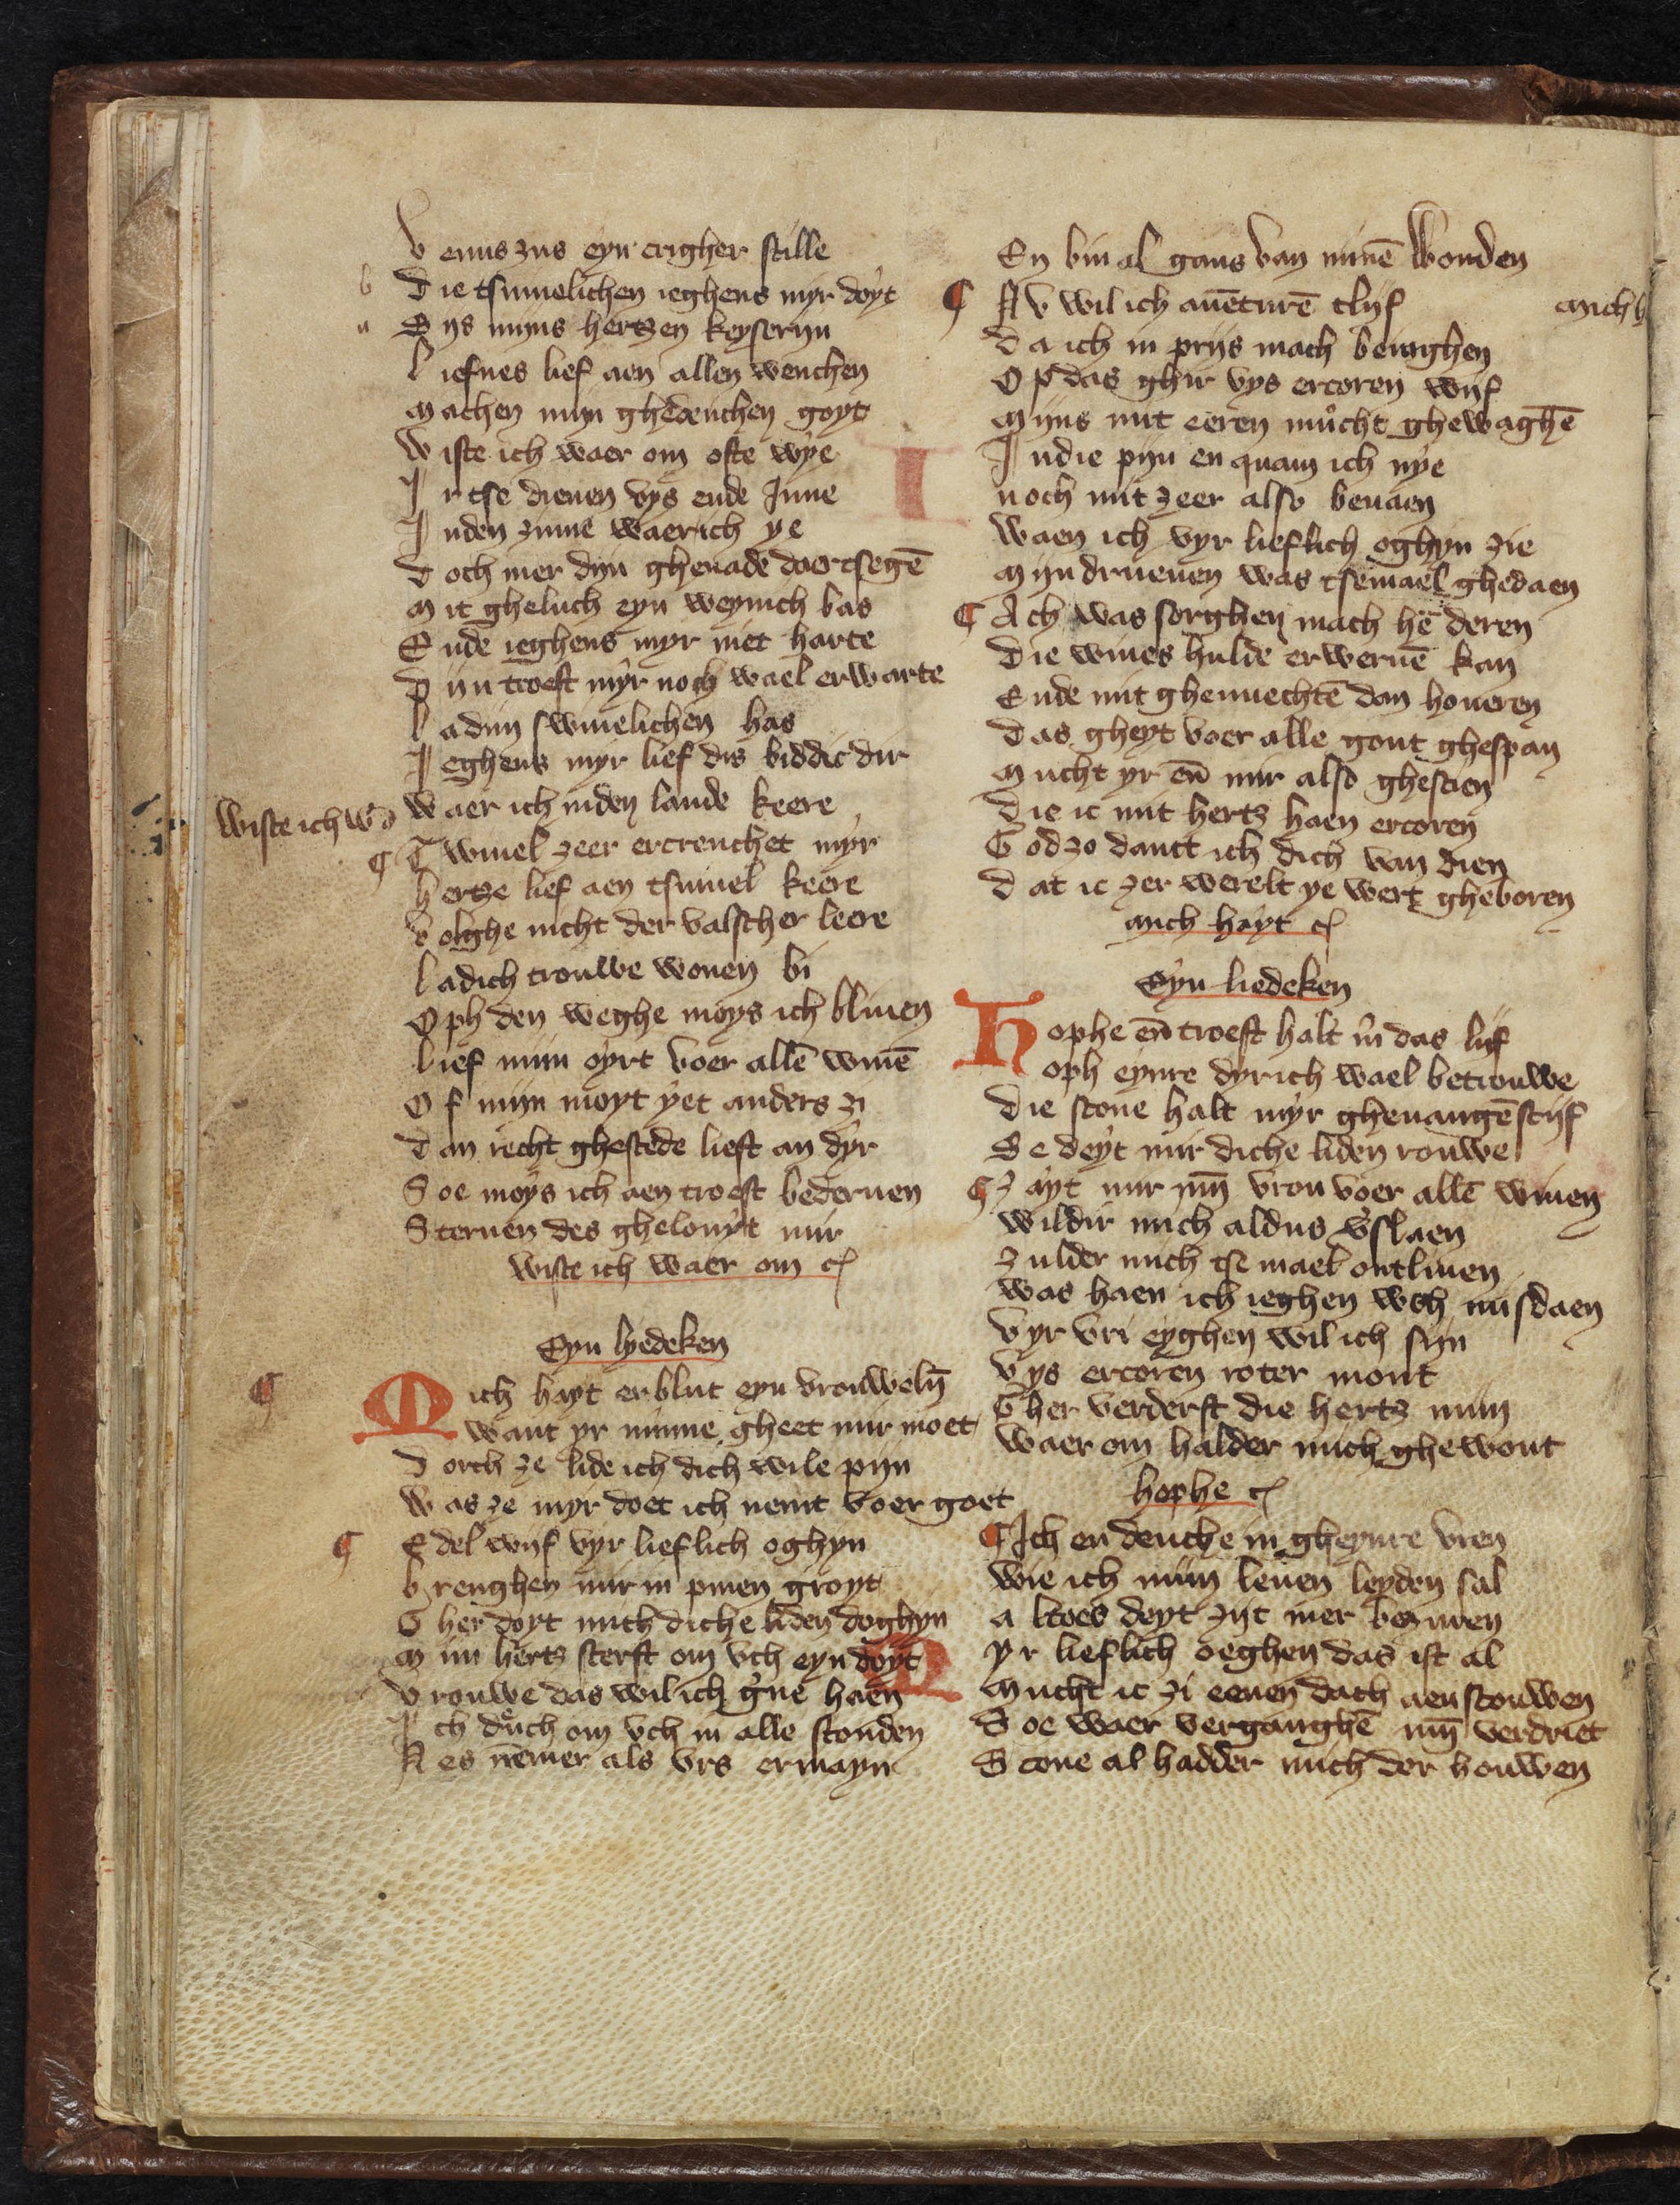 Venus zus eyn crigher stille
b Die tsumelichen ieghens myr doyt
a Eys myns hertzen keyseryn
Liefnes lief aen allen wenchen
Machen myn ghedenchen goyt
Wiste ich waer om ofte wye
Ir tse dienen vys ende Inne
Inden zinne waerich ye
Doch mer dyn ghenade daer tsegē
Mit gheluch eyn weynich bas
Ende ieghens myr niet harte
Dijn troest myr noch wael erwarte
Ladijn swiuelichen has
Ieghens myr lief dis biddic dir
wiste ich wā
Waer ich inden lande keere
¶ Twiuel zeer ercrenchet myr
Hertze lief aen tsuiuel keere
Volghe nicht der valscher leere
Ladich trouwe wonen bi
Oph den weghe moys ich bliuen
Lief mijn oyrt voer allē wiuē
Of mijn moyt yet anders zi
Dan recht ghestede lieft an dyr
Soe moys ich aen troest bederuen
Steruen des ghelouyt mir
Wiste ich waer om c̄
Eyn lyedeken
¶ Mich hayt erblut eyn vrouwelȳ
Want yr minne gheet mir moet
Dorch ze lide ich dich wile pijn
Was ze myr doet ich nemt voer goet
¶ Edel wijf vyr lieflich oghyn
Brenghen mir in pinen groyt
Gher doyt mich diche liden doghyn
Mijn herts sterft om vch eyn doyt
Vrouwe das wil ich g'ne haen
Ich duͦch om vch in alle stonden
N es nēmer als vrs ermayn
En bin al gans van minē wonden
¶ Nv wil ich auētuerē tlijf
mich h
Da ich in prijs mach beiaghen
Op das ghir vys ercoren wijf
Mijns mit eeren muͦcht ghewaghē
Indie pijn en quam ich nye
noch mit zeer also beuaen
Waen ich vyr lieflich oghyn zie
Mijn drueuen was tsemael ghedaen
¶ Ach was sorghen mach hē deren
Die wiues hulde erweruē kan
Ende mit ghenuechtē dan houeren
Das gheyt voer alle gout ghespan
Mucht yr eñ mir also ghescien
Die ic mit herts haen ercoren
God zo danct ich dich van dien
Dat ic zer werelt ye wert gheboren
mich hayt c̄
Eyn liedeken
Hophe eñ troest halt mi das lijf
oph eynre dyrich wael betrouwe
Die scone halt myr gheuangē stijf
Se deyt mir diche liden rouwe
¶ Zayt mir mȳ vrou voer allē wiuen
Wildir mich aldus v'slaen
Zulder mich tse mael ontliuen
Was haen ich ieghen vch misdaen
Vyr vri eyghen wil ich sijn
Vys ercoren roter mont
Gher verderft die herts mijn
Waer om halder mich ghewont
hophe c̄
¶ Ich en denche in gheynre vren
Wie ich mijn leuen leyden sal
Altoes deyt zijt mer bezuren
Yr lieflich oeghen das ist al
Mucht ic zi eenen dach aenscouwen
Soe waer verganghē mȳ verdriet
Scone al hadder mich der houwen